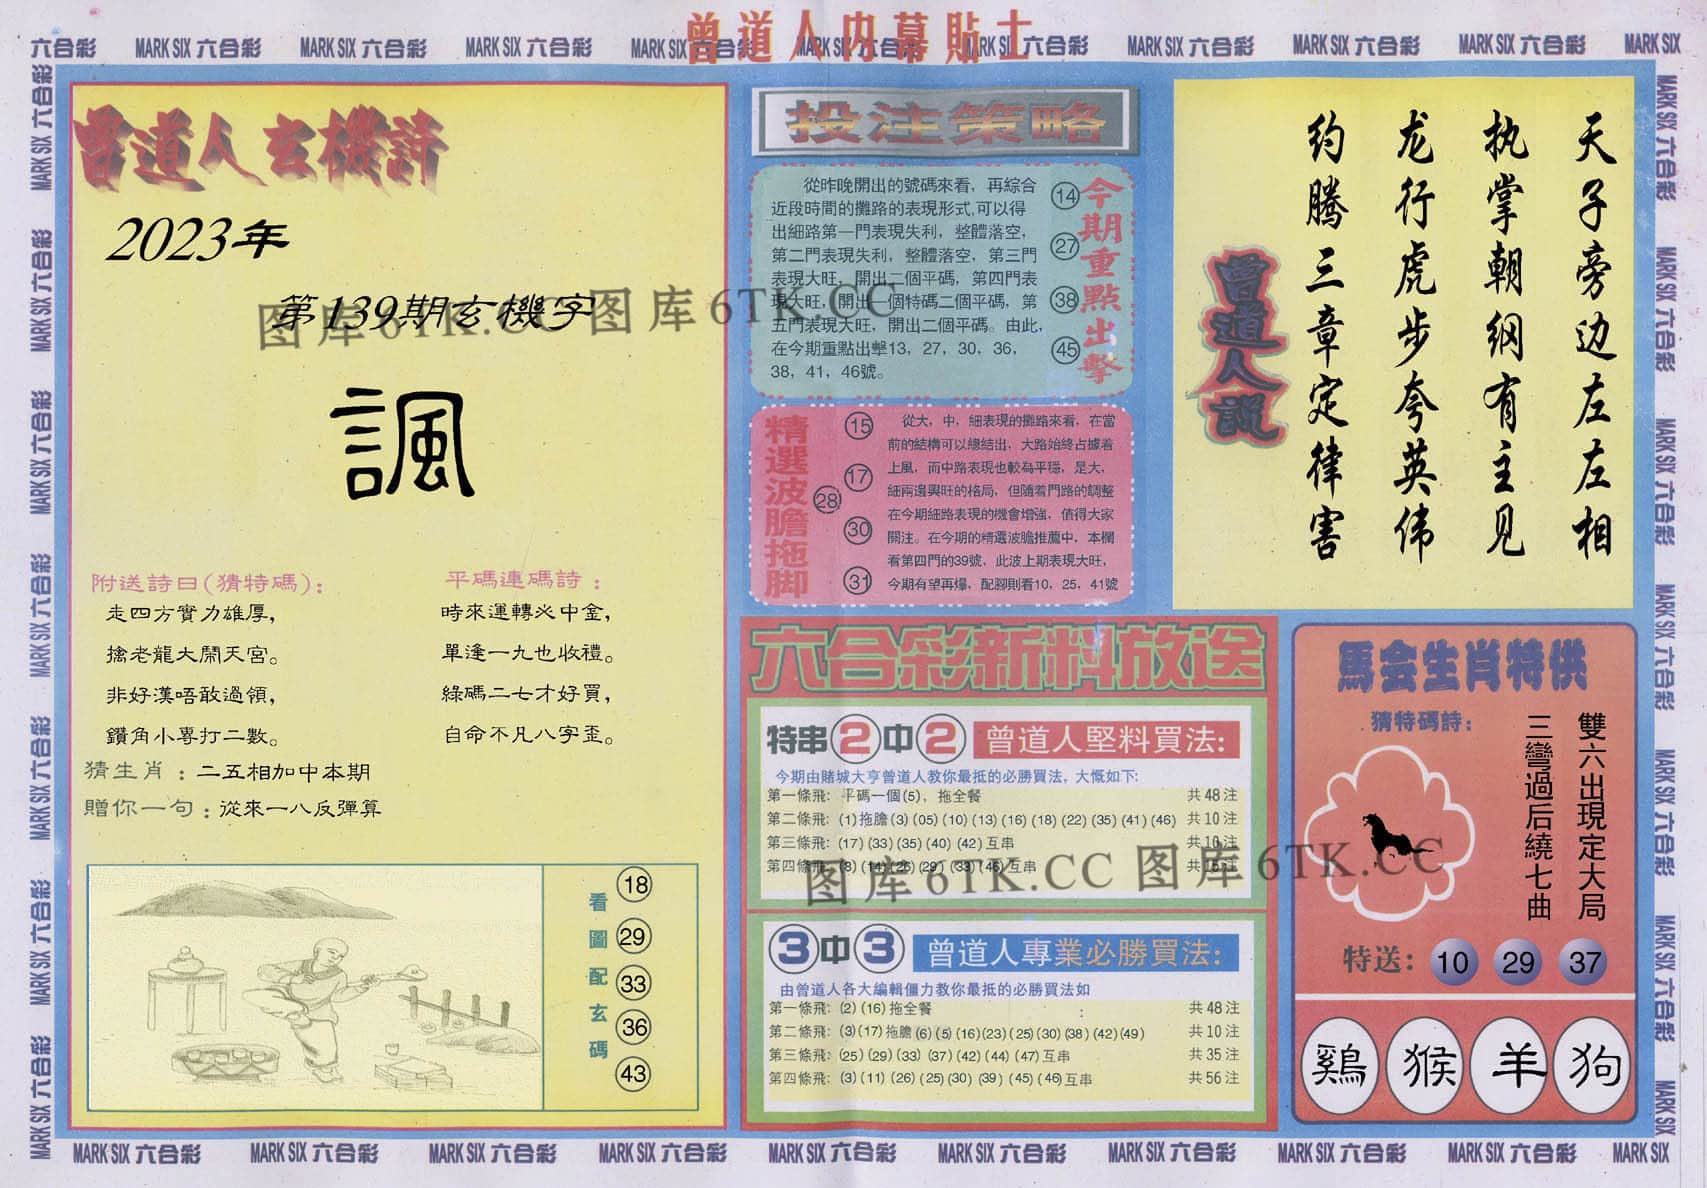 曾道人内幕貼士
六合彩 MARK SIX 六合彩 MARK SIX 六合彩 MARK SIX 六合彩 MARK SIX 六合彩 MARK SIX 六合彩 MARK SIX 六合彩 MARK SIX 六合彩 MARK SIX 六合彩 MARK SIX 六合彩 MARK SIX
曾道人玄機詩
2023年
第139期玄機字
諷
附送詩曰(猜特碼):
走四方實力雄厚,
擒老龍大鬧天宮。
非好漢唔敢過領,
鑽角小專打二數。
平碼連碼詩:
時來運轉必中金,
單逢一九也收禮。
綠碼二七才好買,
自命不凡八字歪。
猜生肖:二五相加中本期
贈你一句:從來一八反彈算
看圖配玄碼
18
29
33
36
43
投注策略
從昨晚開出的號碼來看，再綜合
近段時間的攤路的表現形式,可以得
出細路第一門表現失利，整體落空，
第二門表現失利，整體落空，第三門
表現大旺，開出二個平碼，第四門表
現大旺，開出一個特碼二個平碼，第
五門表現大旺，開出二個平碼。由此，
在今期重點出擊13，27，30，36，
38，41，46號。
14
27
38
45
今期重點出擊
精選波膽拖脚
15
17
28
30
31
從大，中，細表現的攤路來看，在當
前的結構可以總結出，大路始終占據着
上風，而中路表現也較為平穩，是大，
細兩邊興旺的格局，但隨着門路的調整
在今期細路表現的機會增強，值得大家
關注。在今期的精選波膽推薦中，本欄
看第四門的39號，此波上期表現大旺，
今期有望再爆，配腳則看10，25，41號
天子旁边左左相
执掌朝纲有主见
龙行虎步夸英伟
约腾三章定律害
曾道人說
六合彩新料放送
特串2中2 曾道人堅料買法:
今期由賭城大亨曾道人教你最抵的必勝買法，大慨如下:
第一條飛: 平碼一個(5)，拖全餐 共48注
第二條飛: (1)拖膽(3)(05)(10)(13)(16)(18)(22)(35)(41)(46) 共10注
第三條飛: (17)(33)(35)(40)(42)互串 共10注
第四條飛: (8)(14)(26)(29)(33)(46)互串 共15注
3中3 曾道人專業必勝買法:
由曾道人各大編輯僵力教你最抵的必勝買法如
第一條飛: (2)(16)拖全餐 : 共48注
第二條飛: (3)(17)拖膽(6)(5)(16)(23)(25)(30)(38)(42)(49) 共10注
第三條飛: (25)(29)(33)(37)(42)(44)(47)互串 共35注
第四條飛: (3)(11)(26)(25)(30)(39)(45)(46)互串 共56注
馬会生肖特供
猜特碼詩:
雙六出現定大局
三彎過后繞七曲
特送: 10 29 37
鷄 猴 羊 狗
图库6TK.CC 图库6TK.CC
图库6TK.CC 图库6TK.CC
MARK SIX 六合彩 MARK SIX 六合彩 MARK SIX 六合彩 MARK SIX 六合彩 MARK SIX 六合彩 MARK SIX 六合彩 MARK SIX 六合彩 MARK SIX 六合彩 MARK SIX 六合彩 MARK SIX